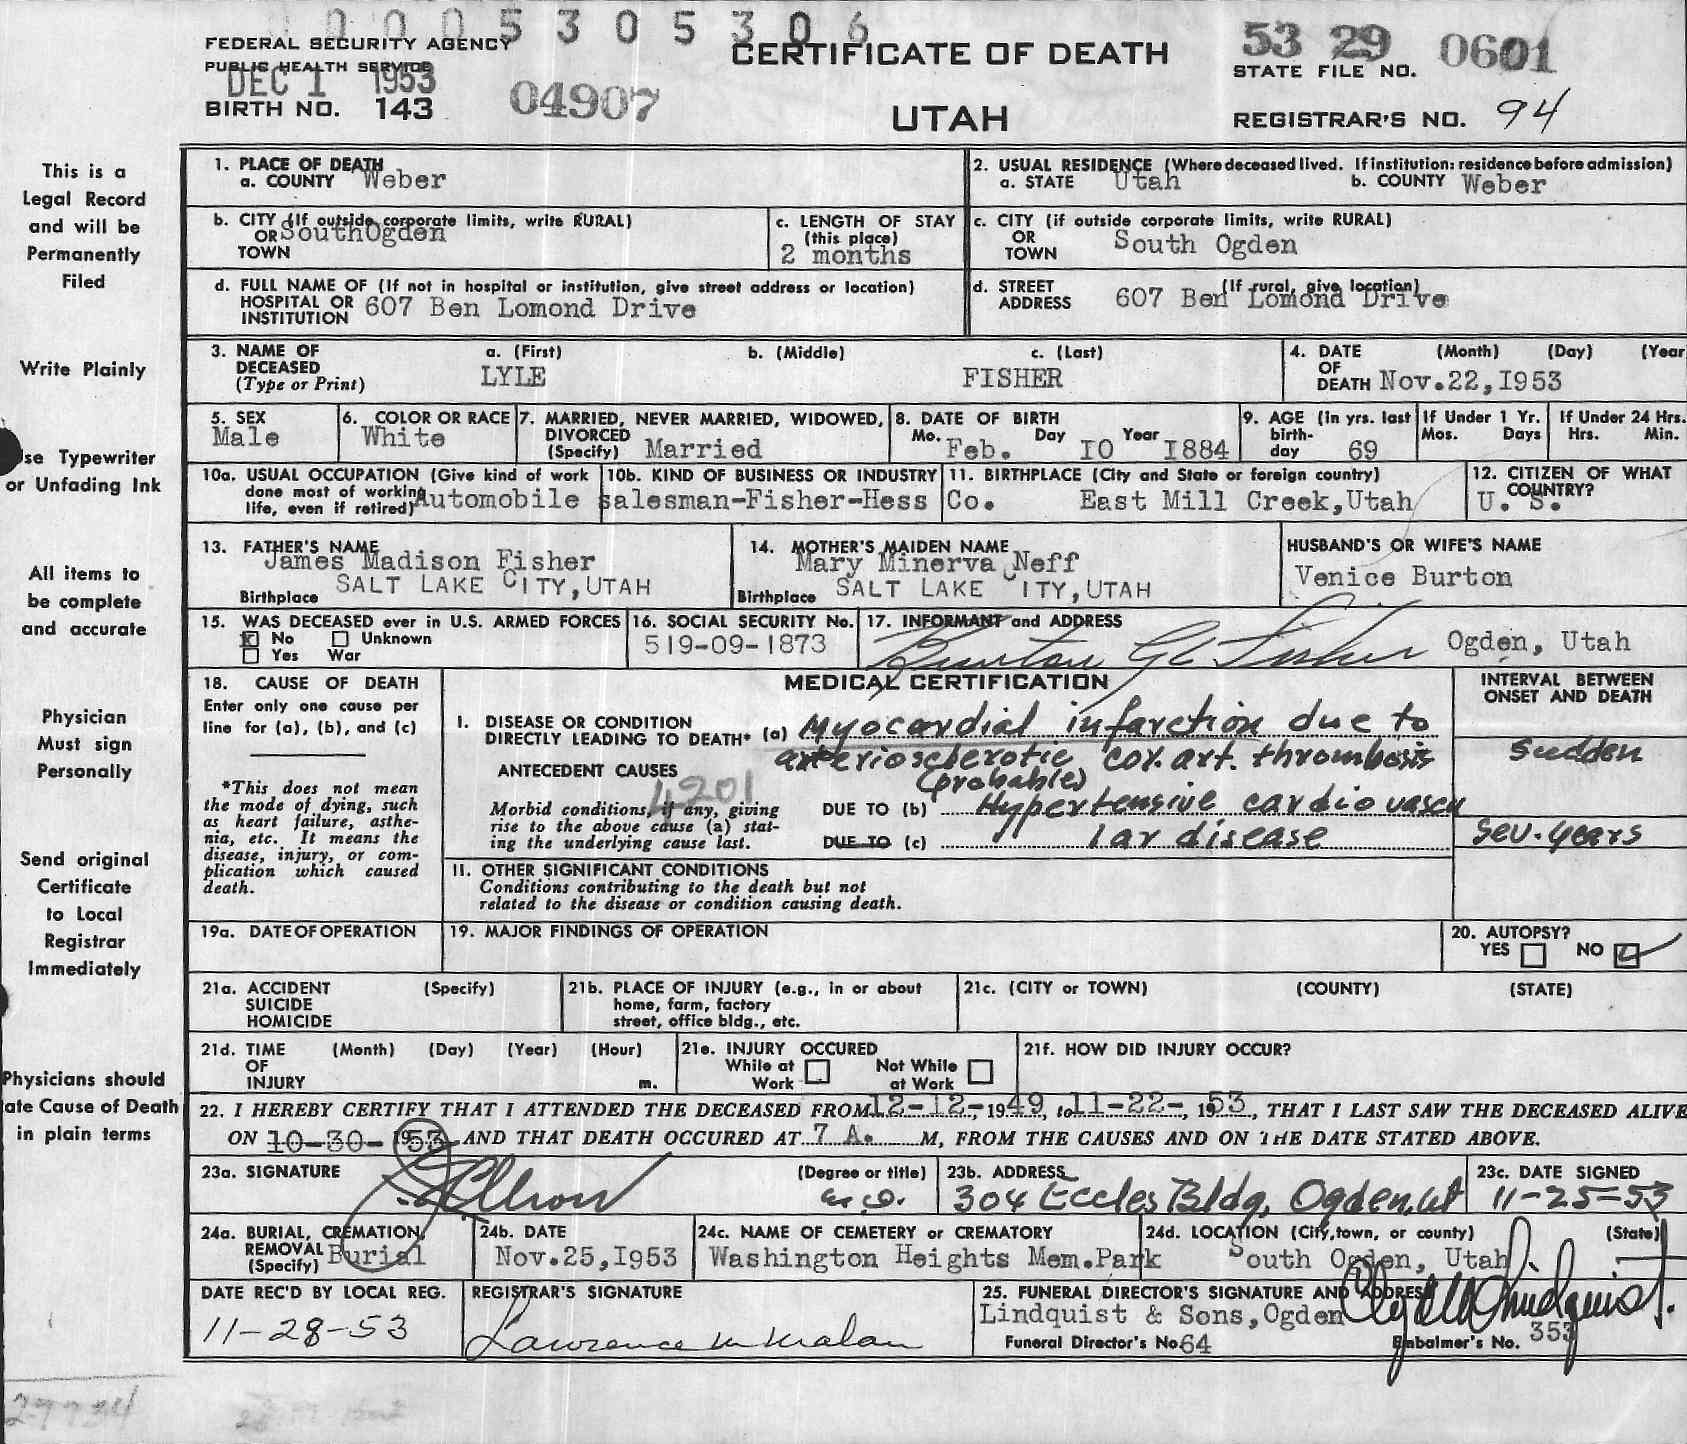 0005305306
FEDERAL SECURITY AGENCY
PUBLIC HEALTH SERVICE
DEC 1 1953
BIRTH NO. 143
04907
CERTIFICATE OF DEATH
UTAH
53 29 0601
STATE FILE NO.
REGISTRAR'S NO. 94
This is a
Legal Record
and will be
Permanently
Filed
Write Plainly
se Typewriter
or Unfading Ink
All items to
be complete
and accurate
Physician
Must sign
Personally
Send original
Certificate
to Local
Registrar
Immediately
Physicians should
ate Cause of Death
in plain terms
1. PLACE OF DEATH
a. COUNTY Weber
2. USUAL RESIDENCE (Where deceased lived. If institution: residence before admission)
a. STATE Utah b. COUNTY Weber
b. CITY (If outside corporate limits, write RURAL)
OR SouthOgden
TOWN
c. LENGTH OF STAY
(this place)
2 months
c. CITY (if outside corporate limits, write RURAL)
OR
TOWN South Ogden
d. FULL NAME OF (If not in hospital or institution, give street address or location)
HOSPITAL OR
INSTITUTION 607 Ben Lomond Drive
d. STREET (If rural, give location)
ADDRESS 607 Ben Lomond Drive
3. NAME OF a. (First) b. (Middle) c. (Last)
DECEASED
(Type or Print) LYLE FISHER
4. DATE (Month) (Day) (Year
OF
DEATH Nov.22,I953
5. SEX
Male
6. COLOR OR RACE
White
7. MARRIED, NEVER MARRIED, WIDOWED,
DIVORCED
(Specify) Married
8. DATE OF BIRTH
Mo. Day Year
Feb. IO I884
9. AGE (in yrs. last
birth-
day 69
If Under 1 Yr.
Mos. Days
If Under 24 Hrs.
Hrs. Min.
10a. USUAL OCCUPATION (Give kind of work
done most of working
life, even if retired) Automobile
10b. KIND OF BUSINESS OR INDUSTRY
salesman-Fisher-Hess Co.
11. BIRTHPLACE (City and State or foreign country)
East Mill Creek,Utah
12. CITIZEN OF WHAT
COUNTRY?
U. S.
13. FATHER'S NAME
James Madison Fisher
Birthplace SALT LAKE CITY,UTAH
14. MOTHER'S MAIDEN NAME
Mary Minerva Neff
Birthplace SALT LAKE CITY,UTAH
HUSBAND'S OR WIFE'S NAME
Venice Burton
15. WAS DECEASED ever in U.S. ARMED FORCES
x No Unknown
Yes War
16. SOCIAL SECURITY No.
519-09-1873
17. INFORMANT and ADDRESS
Burton Fisher Ogden, Utah
18. CAUSE OF DEATH
Enter only one cause per
line for (a), (b), and (c)
*This does not mean
the mode of dying, such
as heart failure, asthe-
nia, etc. It means the
disease, injury, or com-
plication which caused
death.
MEDICAL CERTIFICATION
INTERVAL BETWEEN
ONSET AND DEATH
I. DISEASE OR CONDITION
DIRECTLY LEADING TO DEATH* (a) Myocardial infarction due to
arteriosclerotic cor. art. thrombosis
(probable)
sudden
ANTECEDENT CAUSES
4201
Morbid conditions, if any, giving
rise to the above cause (a) stat-
ing the underlying cause last.
DUE TO (b) Hypertensive cardiovascu
DUE TO (c) lar disease
sev. years
II. OTHER SIGNIFICANT CONDITIONS
Conditions contributing to the death but not
related to the disease or condition causing death.
19a. DATE OF OPERATION
19. MAJOR FINDINGS OF OPERATION
20. AUTOPSY?
YES NO ✓
21a. ACCIDENT (Specify)
SUICIDE
HOMICIDE
21b. PLACE OF INJURY (e.g., in or about
home, farm, factory
street, office bldg., etc.
21c. (CITY or TOWN) (COUNTY) (STATE)
21d. TIME (Month) (Day) (Year) (Hour)
OF
INJURY m.
21e. INJURY OCCURED
While at Work Not While at Work
21f. HOW DID INJURY OCCUR?
22. I HEREBY CERTIFY THAT I ATTENDED THE DECEASED FROM 12-12-, 1949, to 11-22-, 1953, THAT I LAST SAW THE DECEASED ALIVE
ON 10-30- 1953 AND THAT DEATH OCCURED AT 7 A. M, FROM THE CAUSES AND ON THE DATE STATED ABOVE.
23a. SIGNATURE (Degree or title)
M.D.
23b. ADDRESS
304 Eccles Bldg, Ogden, Ut
23c. DATE SIGNED
11-25-53
24a. BURIAL, CREMATION,
REMOVAL
(Specify) Burial
24b. DATE
Nov.25,I953
24c. NAME OF CEMETERY or CREMATORY
Washington Heights Mem.Park
24d. LOCATION (City, town, or county) (State)
South Ogden, Utah
DATE REC'D BY LOCAL REG.
11-28-53
REGISTRAR'S SIGNATURE
Lawrence M Malan
25. FUNERAL DIRECTOR'S SIGNATURE AND ADDRESS
Lindquist & Sons,Ogden Clyde Lindquist
Funeral Director's No. 64 Embalmer's No. 353